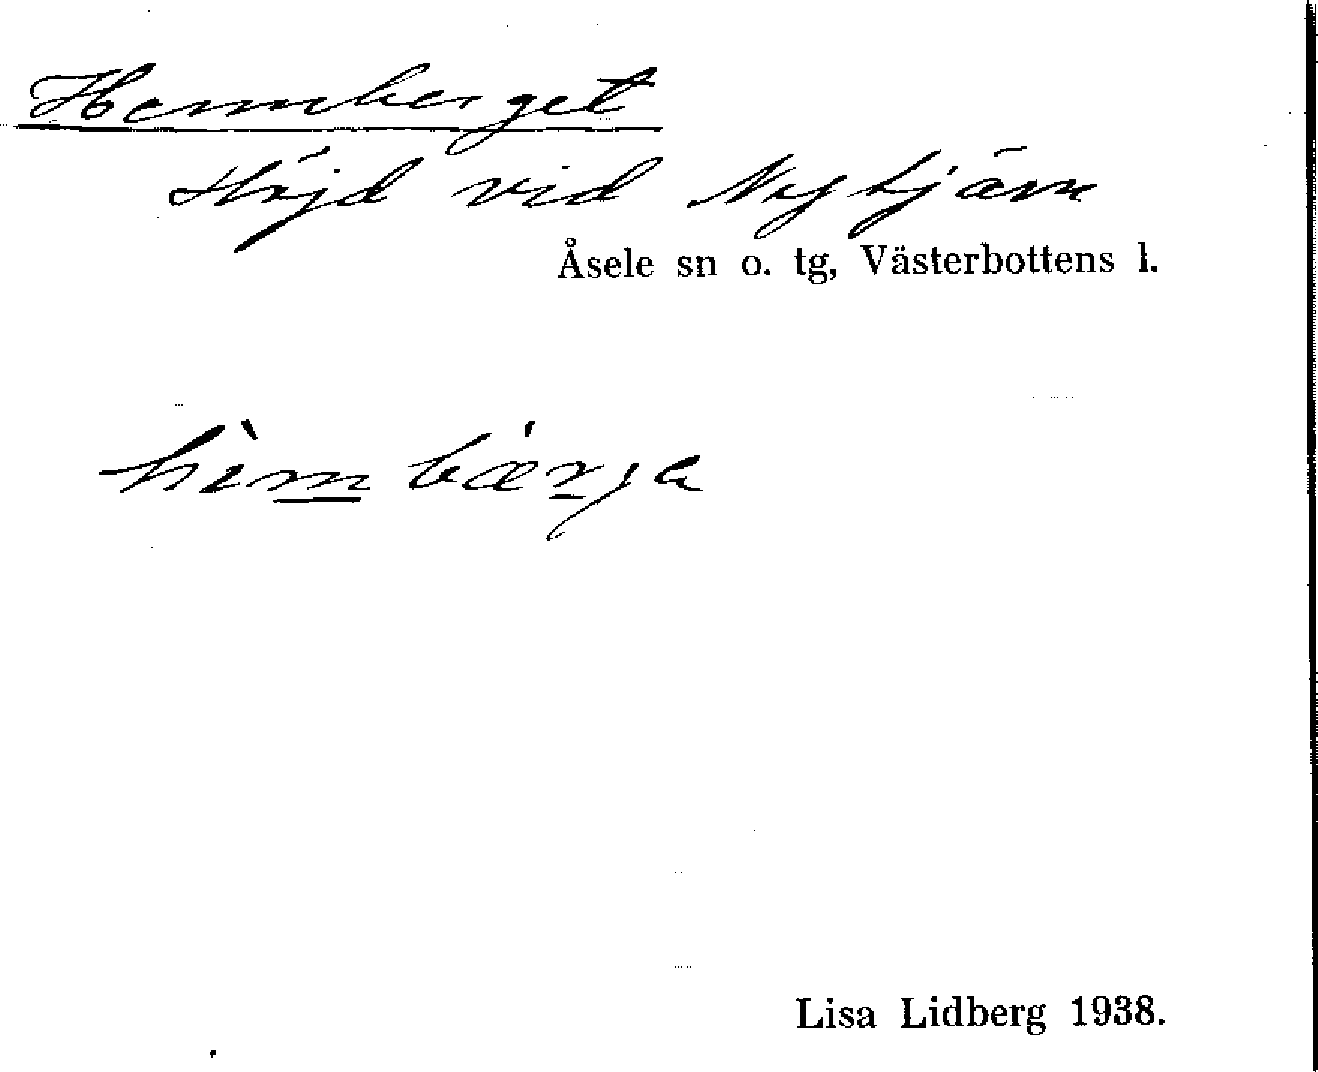 Hemberget
Höjd vid Nytjärn
Åsele sn o. tg, Västerbottens l.
hèm bær̲ja
Lisa Lidberg 1938.